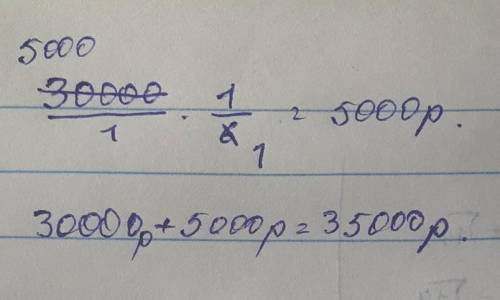 5000
30000/1 · 1/6 1 = 5000р.
30000р+5000р=35000р.